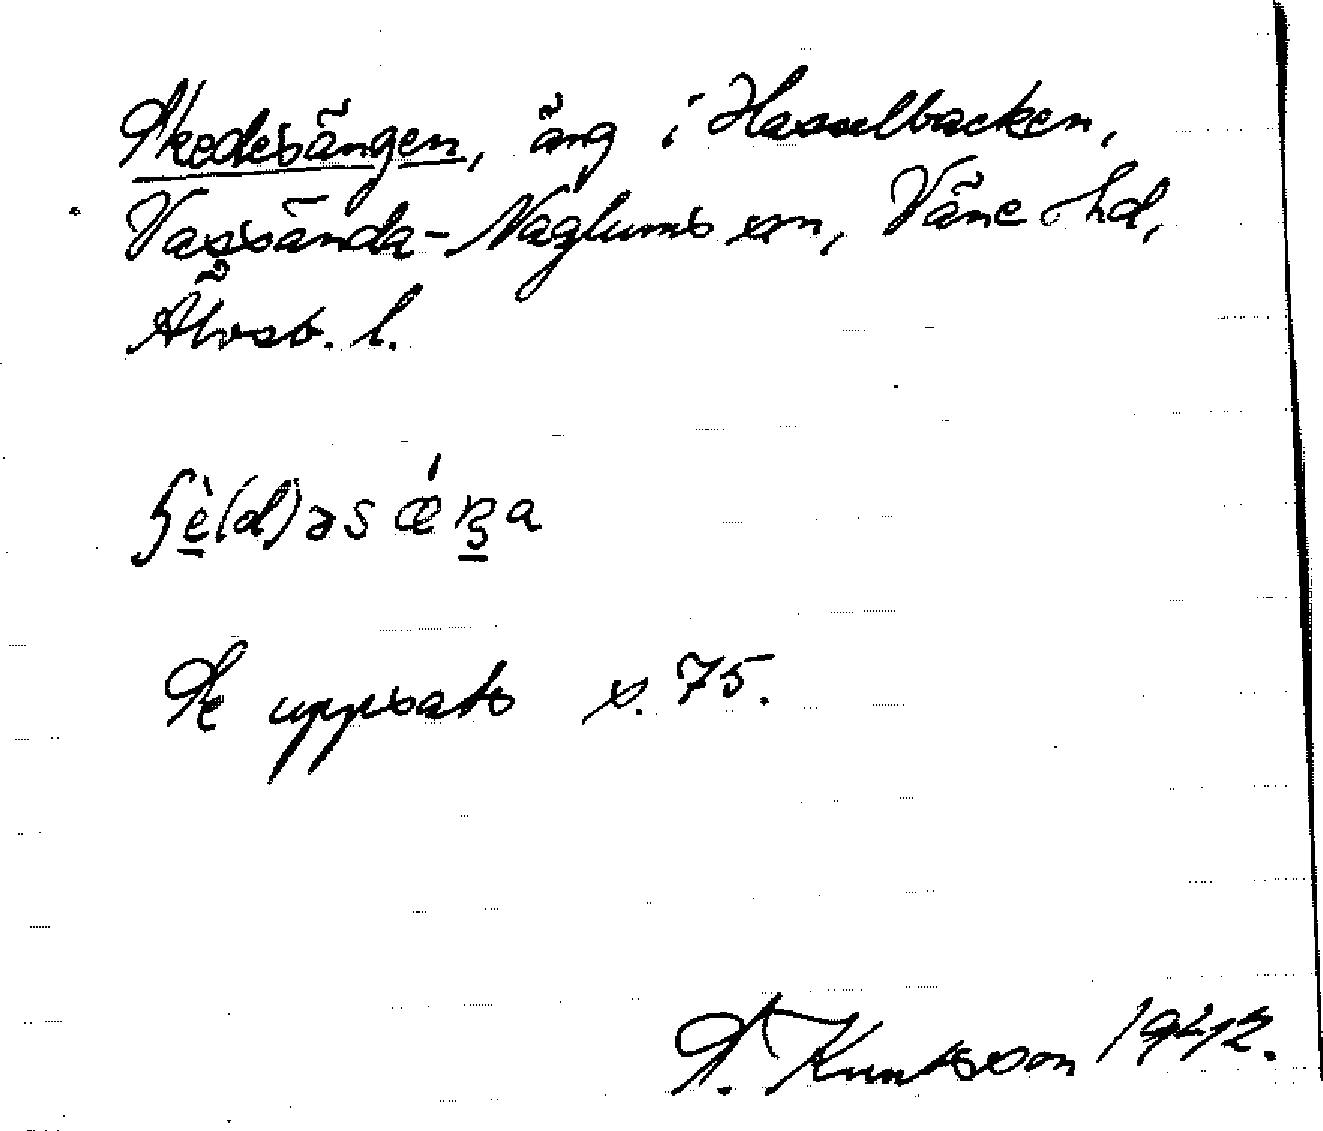 Skedesängen, äng i Hasselbacken,
Vassända-Naglums sn, Väne hd,
Älvsb. l.
ʃè(d)əsǽŋa
Se uppsats s. 75.
S. Knutsson 1942.